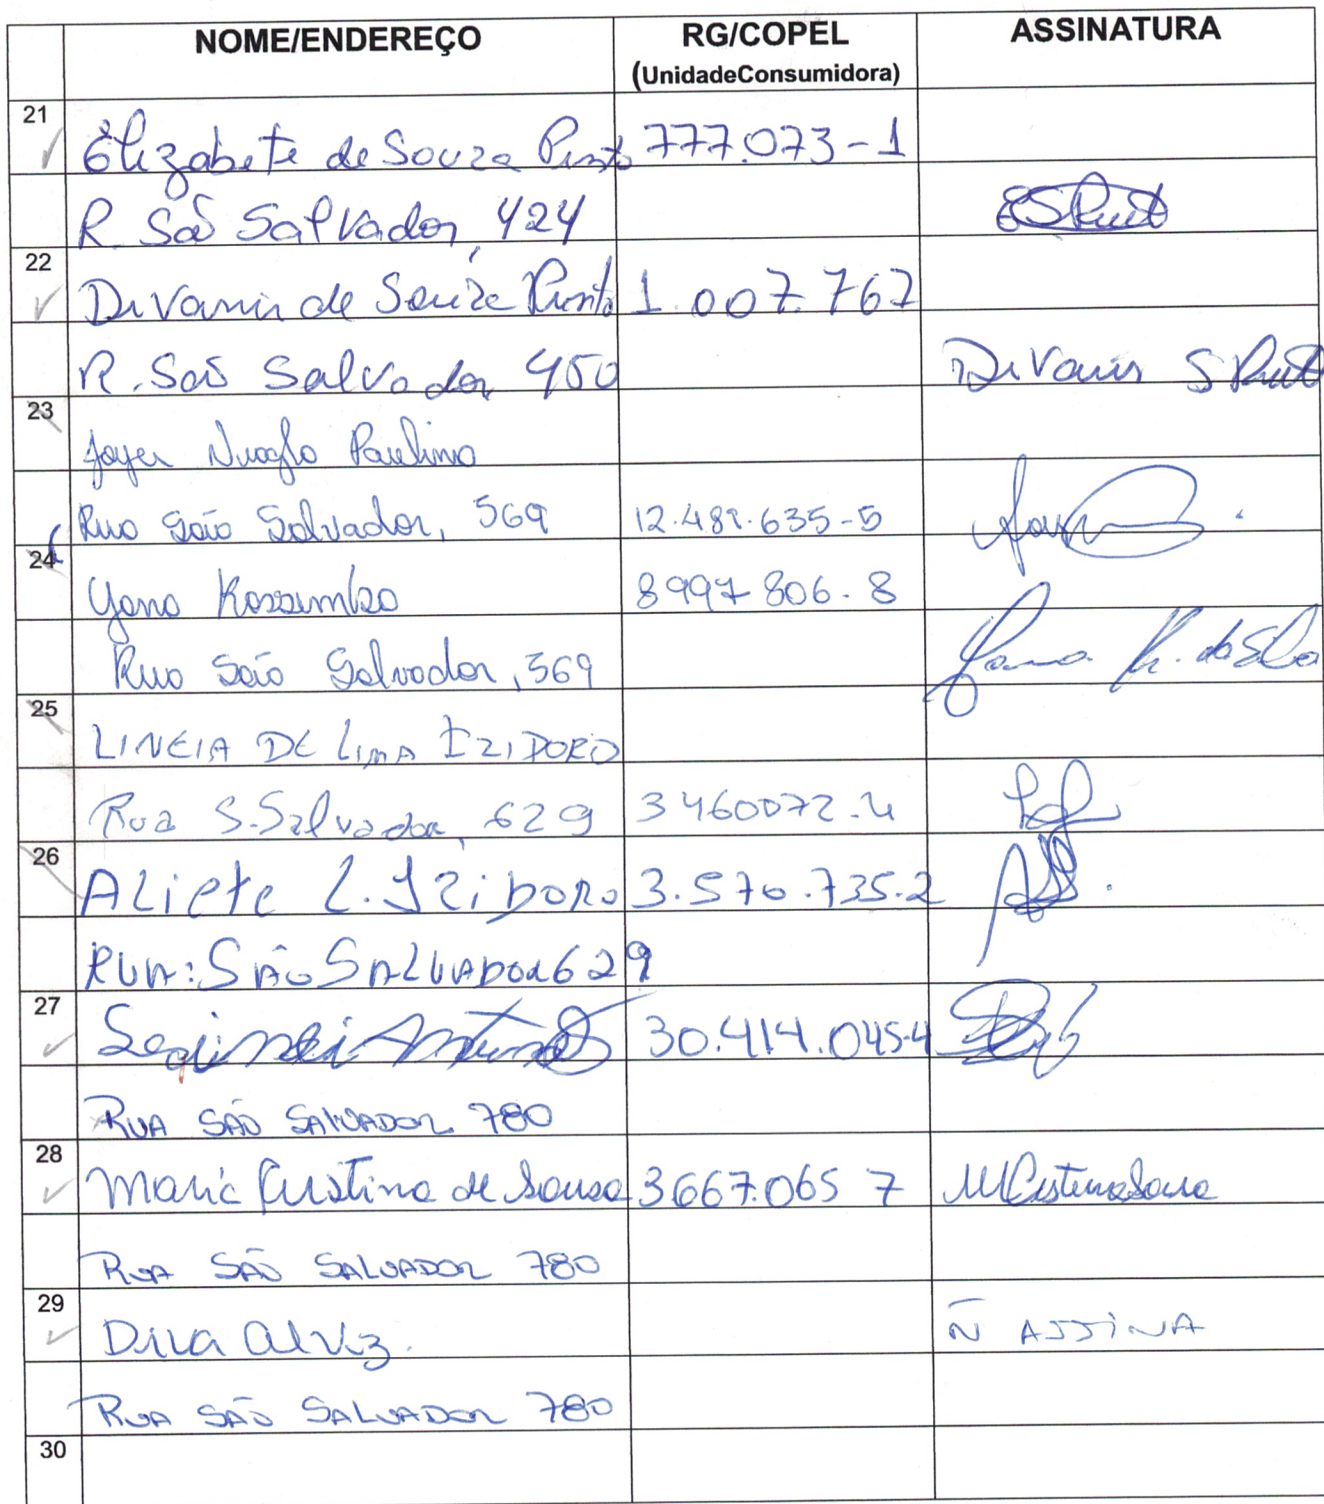 NOME/ENDEREÇO RG/COPEL ASSINATURA
(UnidadeConsumidora)
21
Elizabete de Souza Pinto 777.073-1
R. São Salvador, 424
22
Divanir de Souza Pinto 1.007.767
R. São Salvador 450 Divanir S Pinto
23
Paulino
Rua São Salvador, 569 12.481.635-5
24
Yana 8997806-8
Rua São Salvador, 569 Yana K. da Silva
25
LINEIA DE LIMA IZIDORO
Rua S. Salvador, 629 3460072-4
26
ALiete L. IZiDORO 3.570.735-2
RUA: SÃO SALVADOR 629
27
Antunes 30.414.045-4
RUA SÃO SALVADOR 780
28
Maria Cristina de Sousa 3667.065 7 MCristina Sousa
RUA SÃO SALVADOR 780
29
Diva Alvez. Ñ ASSINA
RUA SÃO SALVADOR 780
30